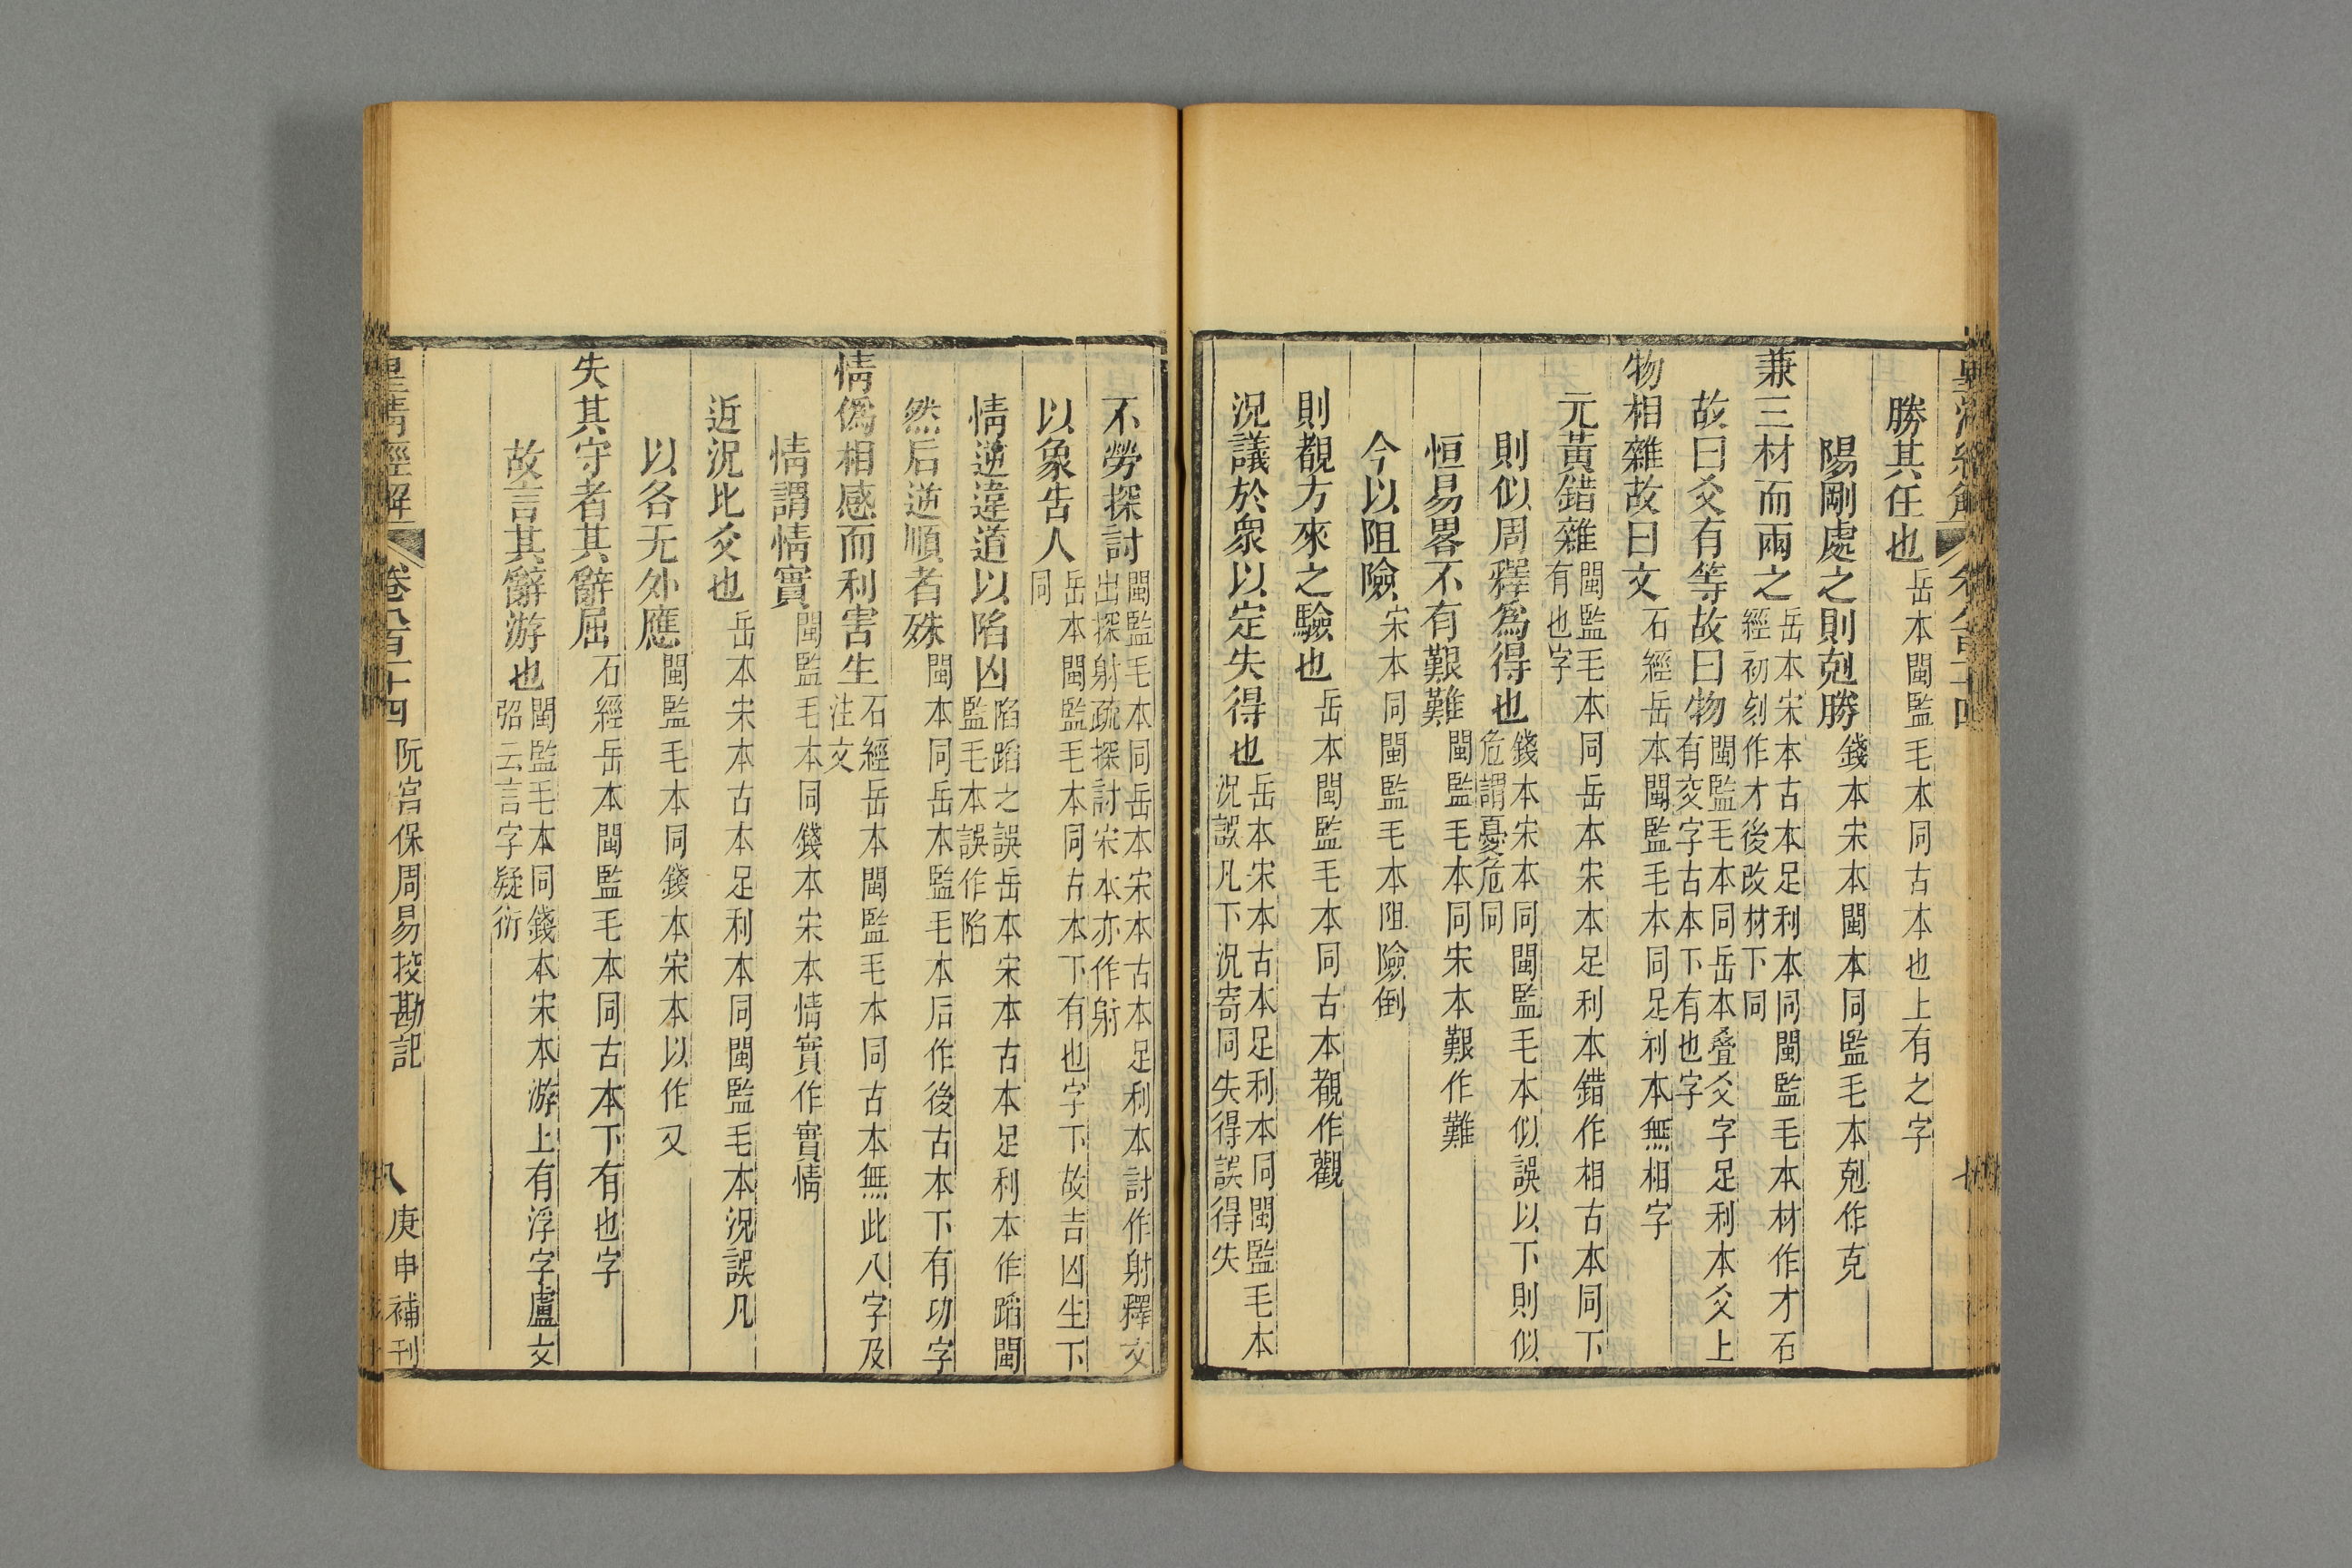 勝其任也岳本閩監毛本同古本也上有之字
陽剛處之則剋勝錢本宋本閩本同監毛本剋作克
兼三材而兩之岳本宋本古本足利本同閩監毛本材作才石經初刻作才後改材下同
故曰爻有等故曰物閩監毛本同岳本叠爻字足利本爻上有交字古本下有也字
物相雜故曰文石經岳本閩監毛本同足利本無相字
元黃錯雜閩監毛本同岳本宋本足利本錯作相古本同下有也字
則似周釋為得也錢本宋本同閩監毛本似誤以下則似危謂憂危同
恒易畧不有艱難閩監毛本同宋本艱作難
今以阻險宋本同閩監毛本阻險倒
則覩方來之驗也岳本閩監毛本同古本覩作觀
況議於衆以定失得也岳本宋本古本足利本同閩監毛本況誤凡下況寄同失得誤得失
不勞探討閩監毛本同岳本宋本古本足利本討作射釋文出探射疏探討宋本亦作射
以象告人岳本閩監毛本同古本下有也字下故吉凶生下同
情逆違道以陷凶陷蹈之誤岳本宋本古本足利本作蹈閩監毛本誤作陷
然后逆順者殊閩本同岳本監毛本后作後古本下有功字
情僞相感而利害生石經岳本閩監毛本同古本無此八字及注文
情謂情實閩監毛本同錢本宋本情實作實情
近況比爻也岳本宋本古本足利本同閩監毛本況誤凡
以各无外應閩監毛本同錢本宋本以作又
失其守者其辭屈石經岳本閩監毛本同古本下有也字
故言其辭游也閩監毛本同錢本宋本游上有浮字盧文弨云言字疑衍
皇清經解 卷八百十四 阮宮保周易挍勘記 八 庚申補刊